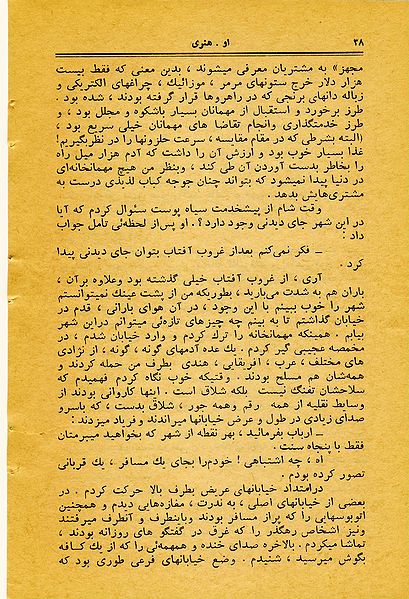 ۲۸
او . هنری
مجهز» به مشتریان معرفی میشوند ، بدین معنی که فقط بیست
هزار دلار خرج ستونهای مرمر ، موزائیك ، چراغهای الکتریکی و
زباله دانهای برنجی که در راهروها قرار گرفته بودند ، شده بود .
طرز برخورد و استقبال از مهمانان بسیار باشکوه و مجلل بود ، و
طرز خدمتگذاری وانجام تقاضا های مهمانان خیلی سریع بود ،
(البته بشرطی که در مقام مقایسه ، سرعت حلزونها را در نظربگیریم!
غذا بسیار خوب بود و ارزش آن را داشت که آدم هزار میل راه
را بخاطر بدست آوردن آن طی کند ، وبنظر من هیچ مهمانخانه‌ای
در دنیا پیدا نمیشود که بتواند چنان جوجه کباب لذیذی درست به
مشتری‌هایش بدهد .
وقت شام از پیشخدمت سیاه پوست سئوال کردم که آیا
در این شهر جای دیدنی وجود دارد؟ او پس‌از لحظه‌ئی تأمل جواب
داد :
ـ فکر نمی‌کنم بعداز غروب آفتاب بتوان جای دیدنی پیدا
کرد .
آری ، از غروب آفتاب خیلی گذشته بود وعلاوه برآن ،
باران هم به شدت می‌بارید ، بطوریکه من از پشت عینك نمیتوانستم
شهر را خوب ببینم با این وجود ، در آن هوای بارانی ، قدم در
خیابان گذاشتم تا به بینم چه چیزهای تازه‌ئی میتوانم دراین شهر
بیابم . همینکه مهمانخانه را ترك کردم و وارد خیابان شدم ، در
مخمصه عجیبی گیر کردم . یك عده آدمهای گونه ، گونه ، از نژادی
های مختلف ، عرب ، آفریقایی ، هندی بطرف من حمله کردند و
همه‌شان هم مسلح بودند . وقتیکه خوب نگاه کردم فهمیدم که
سلاحشان تفنگ نیست بلکه شلاق است . اینها کاروانی بودند از
وسایط نقلیه از همه رقم وهمه جور ، شلاق بدست ، که باسرو
صدای زیادی در طول و عرض خیابانها میراندند و فریاد میزدند :
ـ ارباب بفرمائید ، بهر نقطه از شهر که بخواهید میبرمتان
فقط با پنجاه سنت .
آه ، چه اشتباهی ! خودم‌را بجای یك مسافر ، یك قربانی
تصور کرده بودم .
درامتداد خیابانهای عریض بطرف بالا حرکت کردم . در
بعضی از خیابانهای اصلی ، به ندرت ، مغازه‌هایی دیدم و همچنین
اتوبوسهایی را که پراز مسافر بودند وباینطرف و آنطرف میرفتند
ونیز اشخاص رهگذر را که غرق در گفتگو های روزانه بودند ،
تماشا میکردم . بالاخره صدای خنده و همهمه‌ئی را که از یك کافه
بگوش میرسید ، شنیدم . وضع خیابانهای فرعی طوری بود که